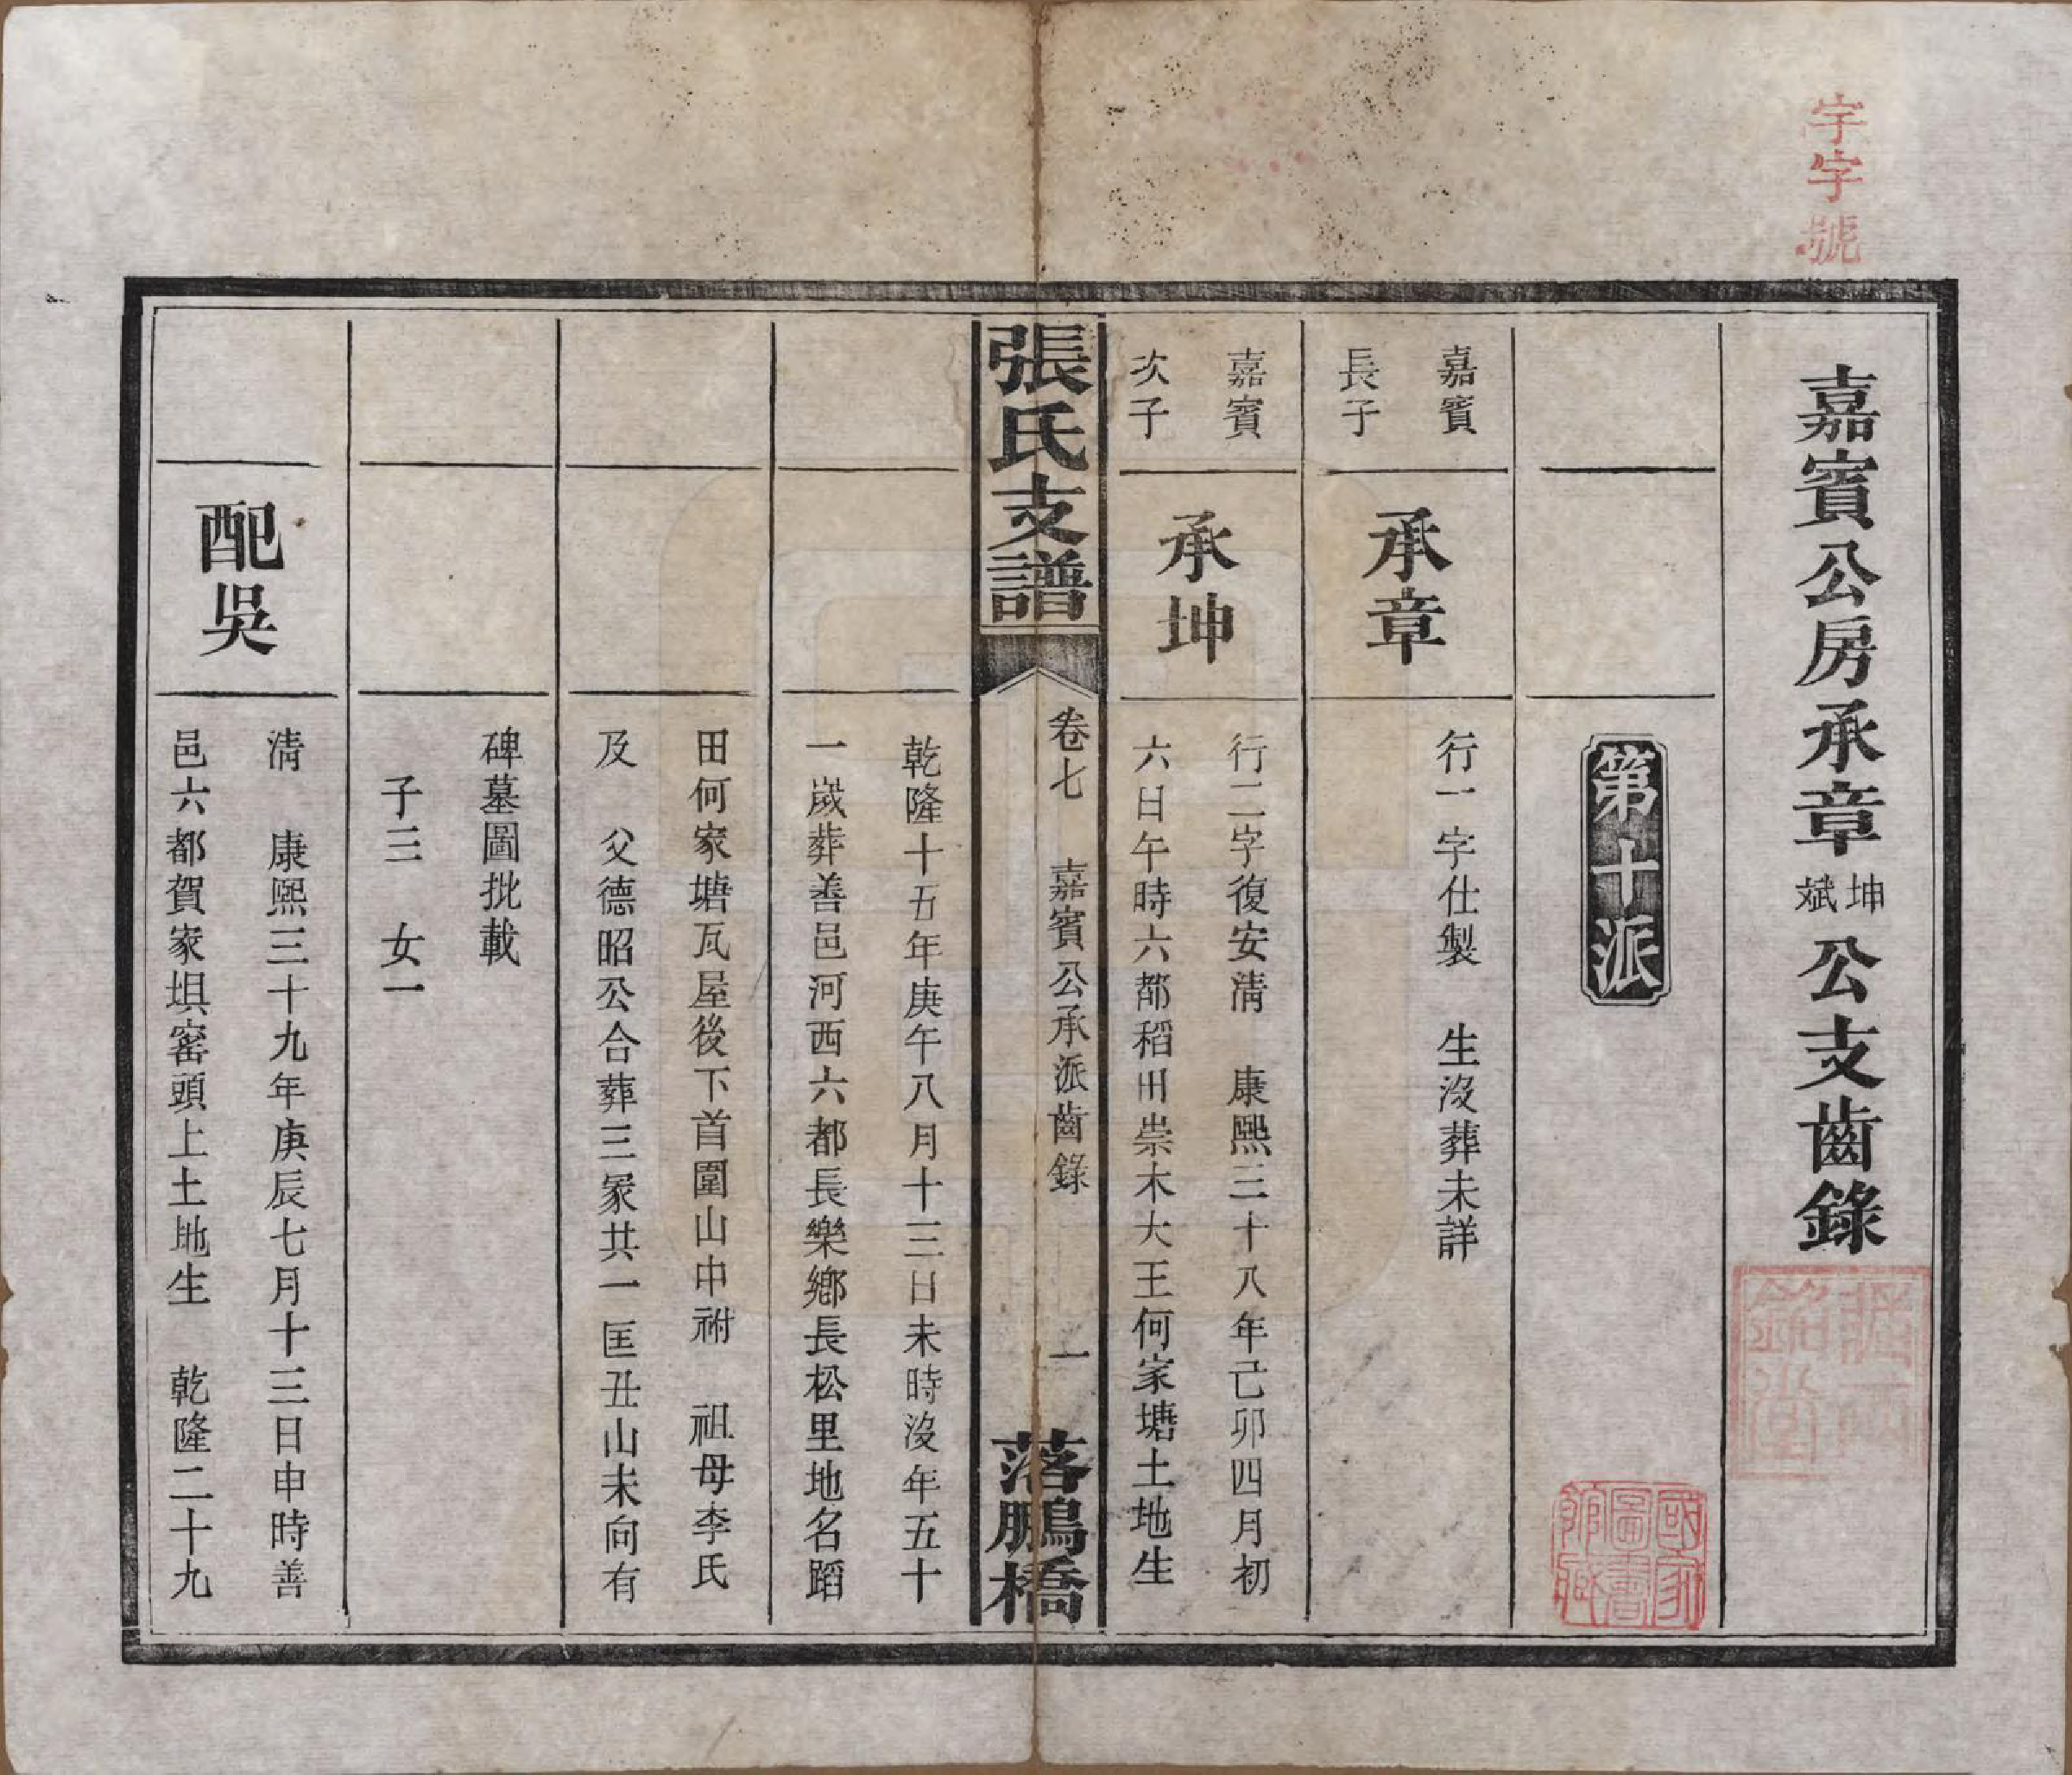 字字號
嘉賓公房承章坤斌公支齒錄
第十派
嘉賓
長子
承章
行一字仕製　生沒葬未詳
嘉賓
次子
承坤
行二字復安清　康熙三十八年己卯四月初
六日午時六都稻田崇木大王何家塘土地生
張氏支譜
卷七　嘉賓公承派齒錄　一
落鵬橋
乾隆十五年庚午八月十三日未時沒年五十
一歲葬善邑河西六都長樂鄉長松里地名蹈
田何家塘瓦屋後下首圍山中祔　祖母李氏
及　父德昭公合葬三冢共一匡丑山未向有
碑墓圖批載
子三　女一
配吳
清　康熙三十九年庚辰七月十三日申時善
邑六都賀家垻窰頭上土地生　乾隆二十九
國家圖書館藏